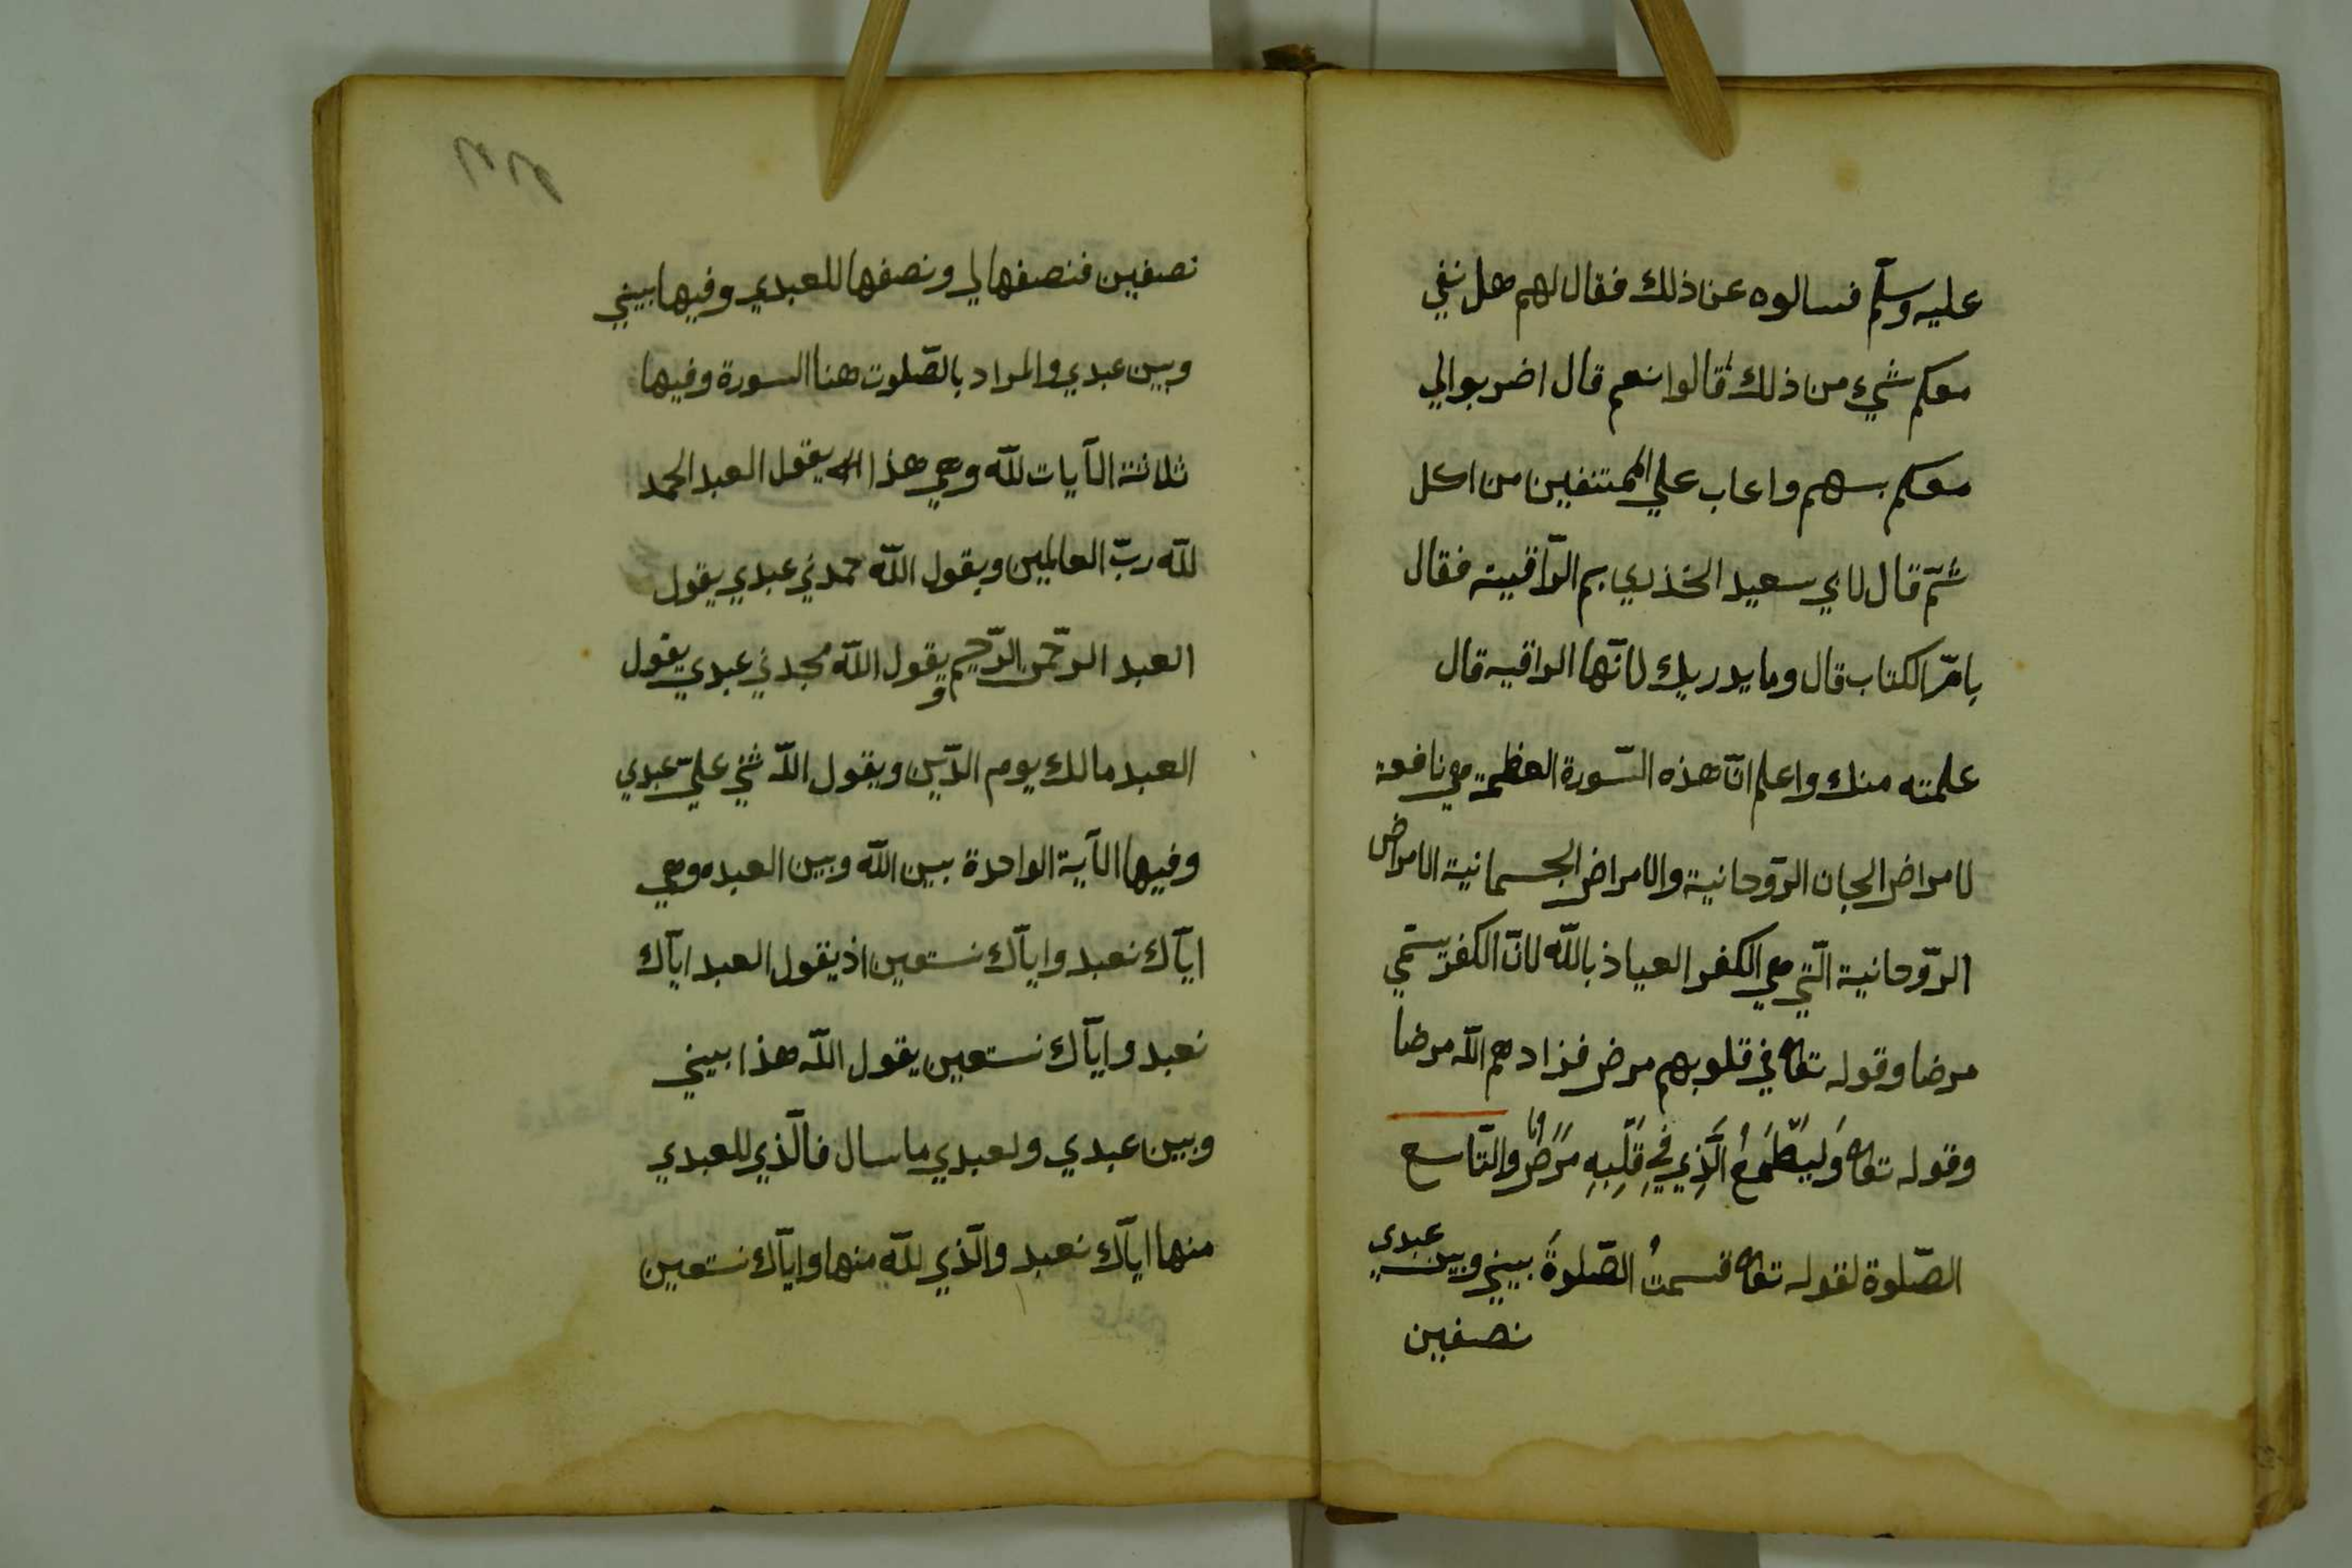 عليه وسلّم فسالوه عن ذلك فقال لهم هل نفي
معكم شيء من ذلك قالوا نعم قال اضربوالي
معكم بسهم واعاب علي الممتنفين من اكل
ثمّ قال لابي سعيد الخذري بم الرّاقيية فقال
بامّ الكتاب قال وما يدريك لانّها الراقيه قال
علمته منك واعلم انّ هذه السّورة العظمة هي نافعة
لامراض الجان الرّوحانية والامراض الجسمانية الامراض
الرّوحانية الّتي هي الكفر العياذ باللّه لانّ الكفر يسمّي
مرضا وقوله تعالى في قلوبهم مرض فزادهم اللّه مرضا
وقوله تعالى وَليَطْمَعُ الَّذِي فِي قَلْبِهِ مَرَضٌ والتّاسع
الصّلوة لقوله تعالى قسمتُ الصّلوةَ بيني وبين عبدي
نصفين
نصفين فنصفها لي ونصفها للعبدي وفيها بيني
وبين عبدي والمراد بالصّلوت هنا السورة وفيها
ثلاثة الآيات للّه وهي هذا يقول العبد الحمد
للّه ربّ العالمين ويقول اللّه حمدني عبدي يقول
العبد الرّحمن الرّحيم ويقول اللّه مجدني عبدي يقول
العبد مالك يوم الدّين ويقول اللّه ثني عليّ عبدي
وفيها الآية الواحدة بين اللّه وبين العبده وهي
ايّاك نعبد وايّاك نستعين اذ يقول العبد ايّاك
نعبد وايّاك نستعين يقول اللّه هذا بيني
وبين عبدي ولعبدي ما سال فالّذي للعبدي
منها ايّاك نعبد والّذي للّه منها وايّاك نستعين